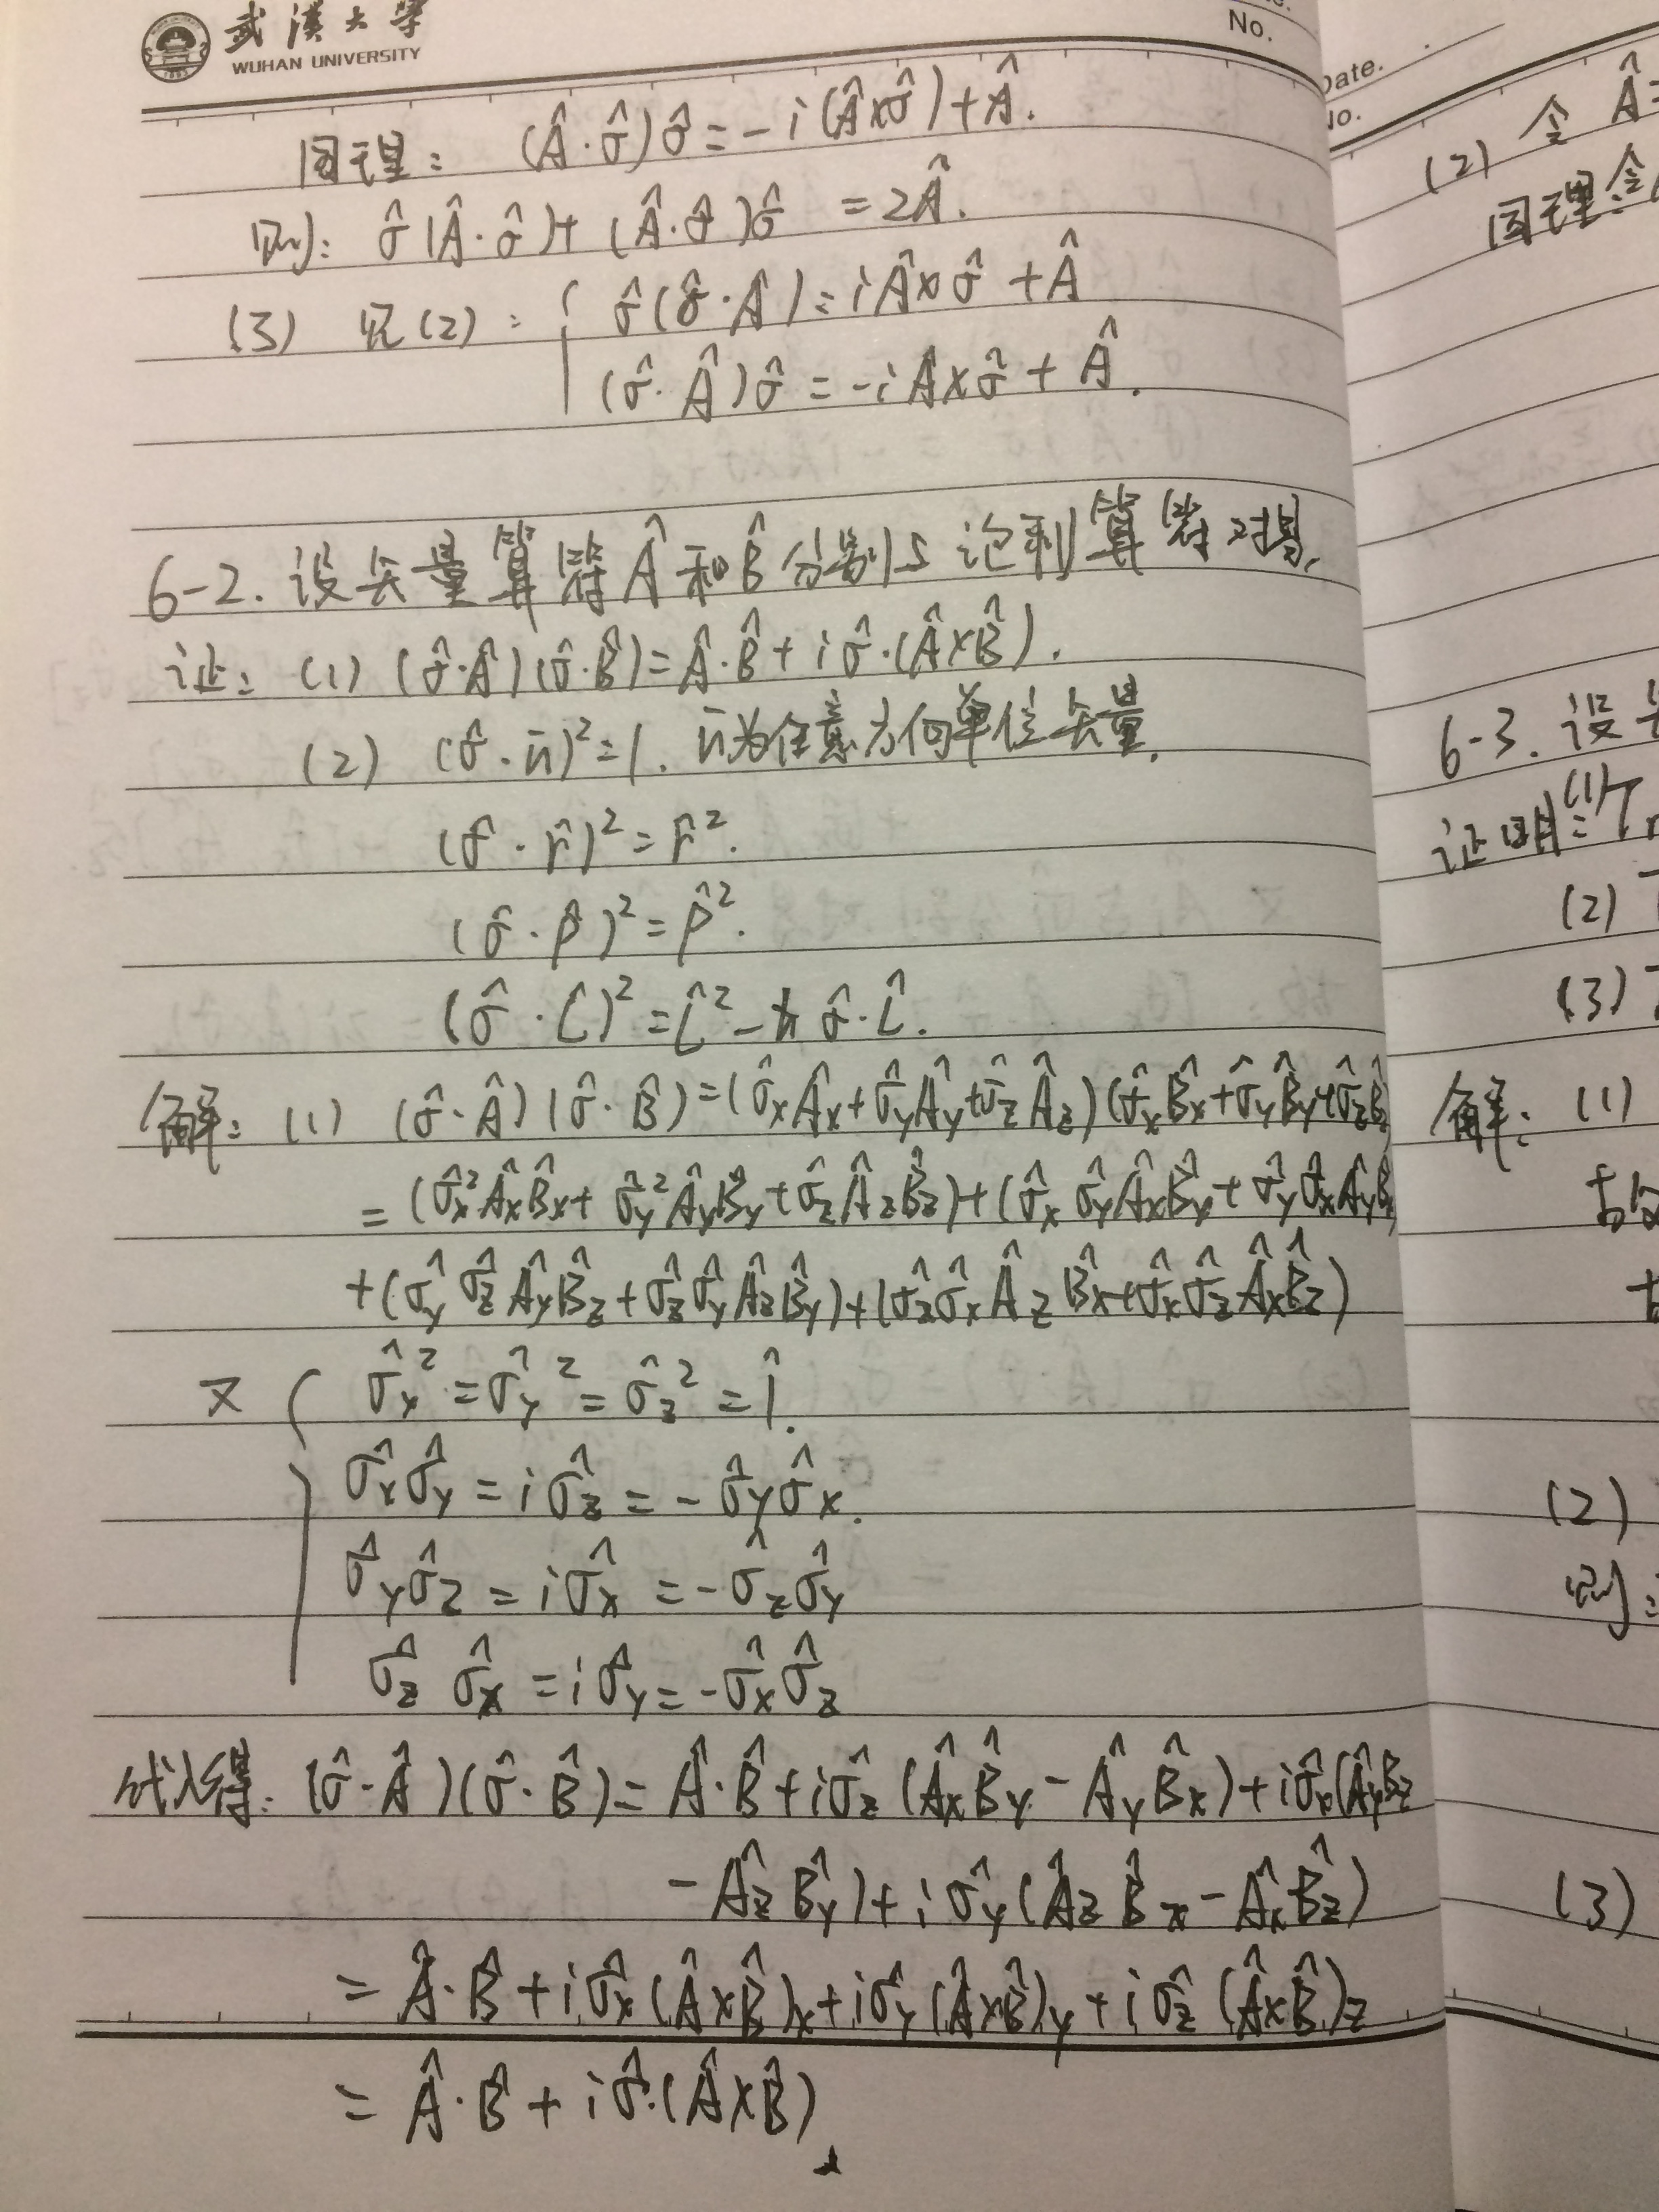 武漢大学
WUHAN UNIVERSITY
No.
同理: (Â·σ̂)σ̂=-i(Â×σ̂)+Â.
则: σ̂(Â·σ̂)+(Â·σ̂)σ̂ =2Â.
(3) 见(2): { σ̂(σ̂·Â)=iÂ×σ̂+Â
(σ̂·Â)σ̂=-iÂ×σ̂+Â.
6-2. 设矢量算符Â和B̂分别与泡利算符对易,
证: (1) (σ̂·Â)(σ̂·B̂)=Â·B̂+iσ̂·(Â×B̂).
(2) (σ̂·n̄)²=1. n̄为任意方向单位矢量.
(σ̂·r̂)²=r̂².
(σ̂·p̂)²=p̂².
(σ̂·L̂)²=L̂²-ħσ̂·L̂.
解: (1) (σ̂·Â)(σ̂·B̂)=(σ̂xÂx+σ̂yÂy+σ̂zÂz)(σ̂xB̂x+σ̂yB̂y+σ̂zB̂z
=(σ̂x²ÂxB̂x+σ̂y²ÂyB̂y+σ̂zÂzB̂z)+(σ̂xσ̂yÂxB̂y+σ̂yσ̂xÂyB̂x
+(σ̂yσ̂zÂyB̂z+σ̂zσ̂yÂzB̂y)+(σ̂zσ̂xÂzB̂x+σ̂xσ̂zÂxB̂z)
又 { σ̂x²=σ̂y²=σ̂z²=1̂.
σ̂xσ̂y=iσ̂z=-σ̂yσ̂x.
σ̂yσ̂z=iσ̂x=-σ̂zσ̂y
σ̂zσ̂x=iσ̂y=-σ̂xσ̂z
代入得: (σ̂·Â)(σ̂·B̂)=Â·B̂+iσ̂z(ÂxB̂y-ÂyB̂x)+iσ̂x(ÂyB̂z
-ÂzB̂y)+iσ̂y(ÂzB̂x-ÂxB̂z)
=Â·B̂+iσ̂x(Â×B̂)x+iσ̂y(Â×B̂)y+iσ̂z(Â×B̂)z
=Â·B̂+iσ̂·(Â×B̂).
Date.
No.
(2) 令 Â=
同理:令
6-3. 设
证明:(1)
(2)
(3)
解: (1)
故
(2)
则:
(3)